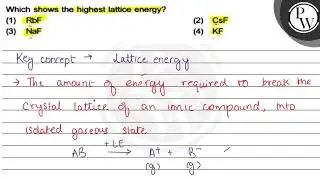 Which shows the highest lattice energy?
(1) RbF (2) CsF
(3) NaF (4) KF
PW
Key concept → Lattice energy
→ The amount of energy required to break the
crystal lattice of an ionic compound, into
isolated gaseous state.
AB +LE → A+ + B-
(g) (g)